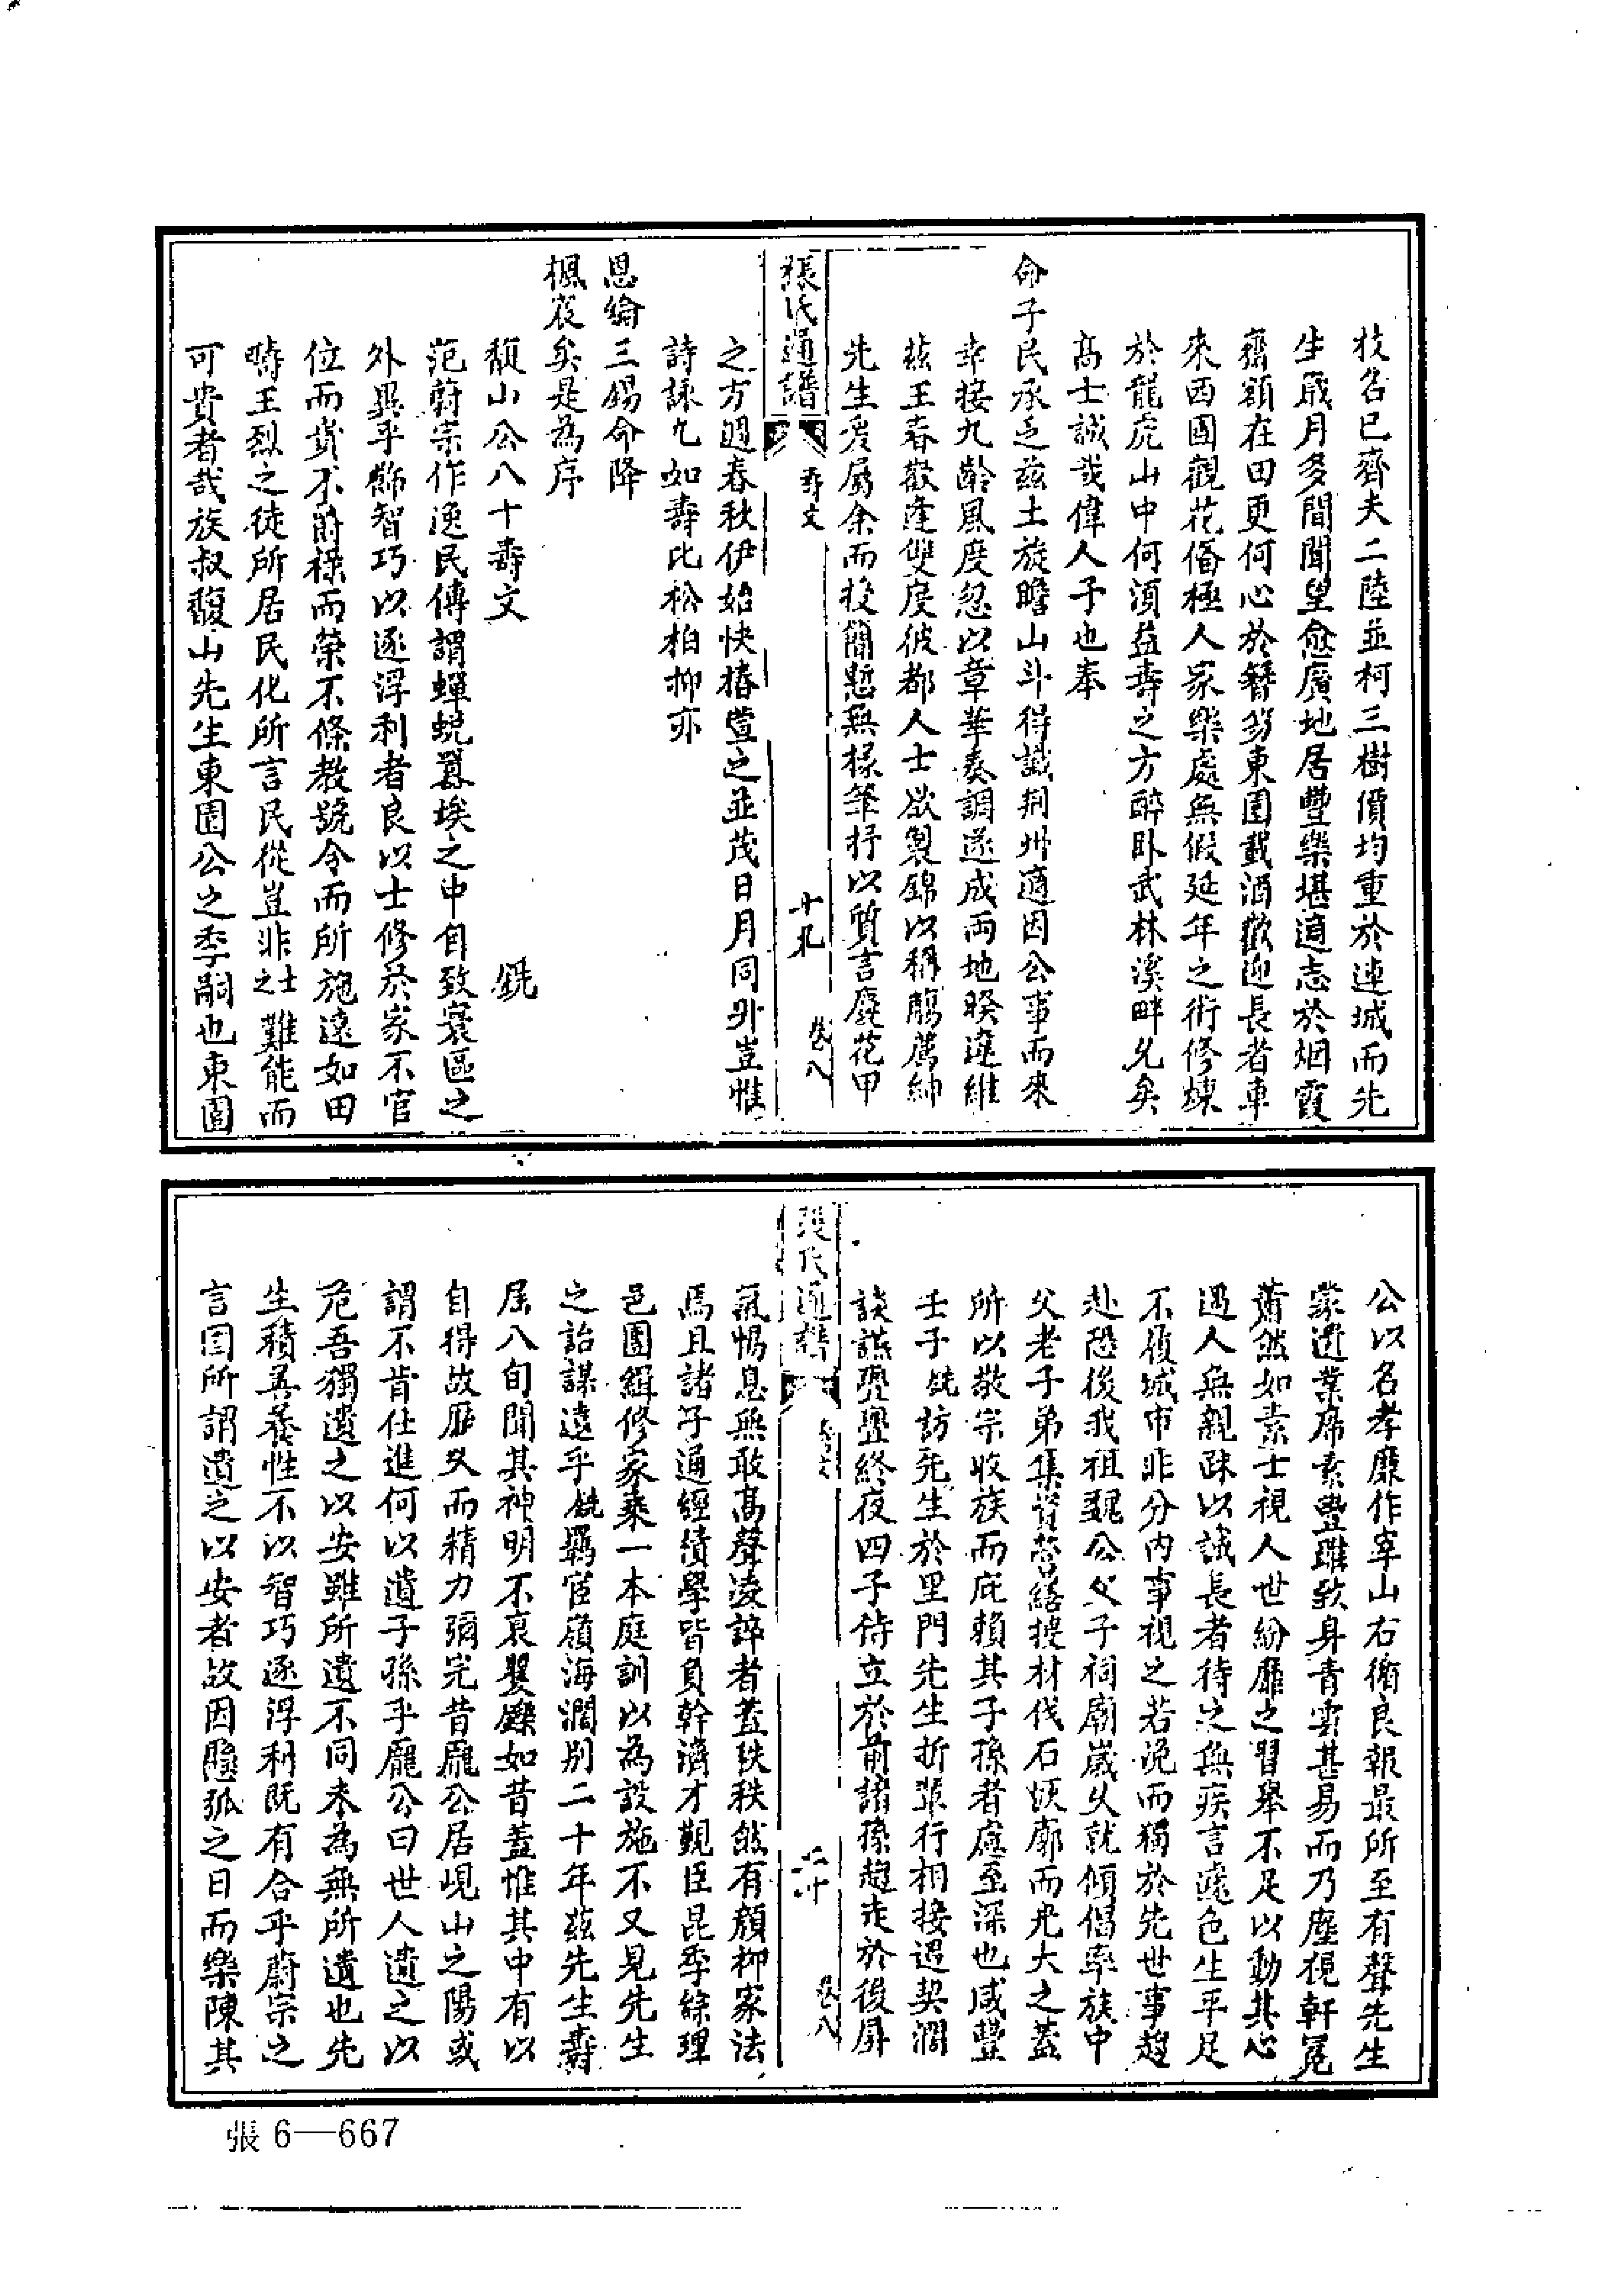 枝名已齊夫二陸並柯三樹價均重於連城而先
生歲月多閒聞望愈廣地居豐樂堪適志於烟霞
齋額在田更何心於簪笏東園載酒歡迎長者車
來西園觀花俻極人家樂處無假延年之術修煉
於龍虎山中何須益壽之方醉卧武林溪畔允矣
高士誠哉偉人予也奉
命子民承乏兹土旋瞻山斗得識荆州適因公事而來
幸接九齡風度忽以章華奏調遂成兩地暌違維
兹王春歡逢雙度彼都人士欲製錦以稱觴薦紳
先生爰屬余而投簡慙無椽筆抒以質言慶花甲
張氏通譜
壽文
十九
卷八
之方週春秋伊始快椿萱之並茂日月同升豈惟
詩詠九如壽比松柏抑亦
恩綸三錫命降
楓宸矣是為序
馥山公八十壽文
銑
范蔚宗作逸民傳謂蟬蛻囂埃之中自致寰區之
外異乎飾智巧以逐浮利者良以士修於家不官
位而貴不爵祿而榮不條教號令而所施遠如田
疇王烈之徒所居民化所言民從豈非士之難能而
可貴者哉族叔馥山先生東園公之季嗣也東園
公以名孝廉作宰山右循良報最所至有聲先生
蒙遺業席素豐雖致身青雲甚易而乃塵視軒冕
蕭然如素士視人世紛靡之習舉不足以動其心
遇人無親踈以誠長者待之無疾言遽色生平足
不履城市非分內事視之若浼而獨於先世事趨
赴恐後我祖魏公父子祠廟嵗久就傾倡率族中
父老子弟集貲營繕搜材伐石恢廓而光大之蓋
所以敬宗收族而庇賴其子孫者慮至深也咸豐
壬子銑訪先生於里門先生折輩行相接遇契濶
談讌亹亹終夜四子侍立於前諸孫趨走於後屏
張氏通譜
壽文
二十
卷八
氣惕息無敢高聲凌誶者蓋秩秩然有顏柳家法
焉且諸子通經績學皆負幹濟才觀臣昆季綜理
邑團緝修家乘一本庭訓以為設施不又見先生
之詒謀遠乎銑羈宦嶺海濶别二十年茲先生壽
屆八旬聞其神明不衰矍鑠如昔蓋惟其中有以
自得故歷久而精力彌完昔龐公居峴山之陽或
謂不肯仕進何以遺子孫乎龐公曰世人遺之以
危吾獨遺之以安雖所遺不同未為無所遺也先
生積善養性不以智巧逐浮利既有合乎蔚宗之
言固所謂遺之以安者故因懸弧之日而樂陳其
張 6—667